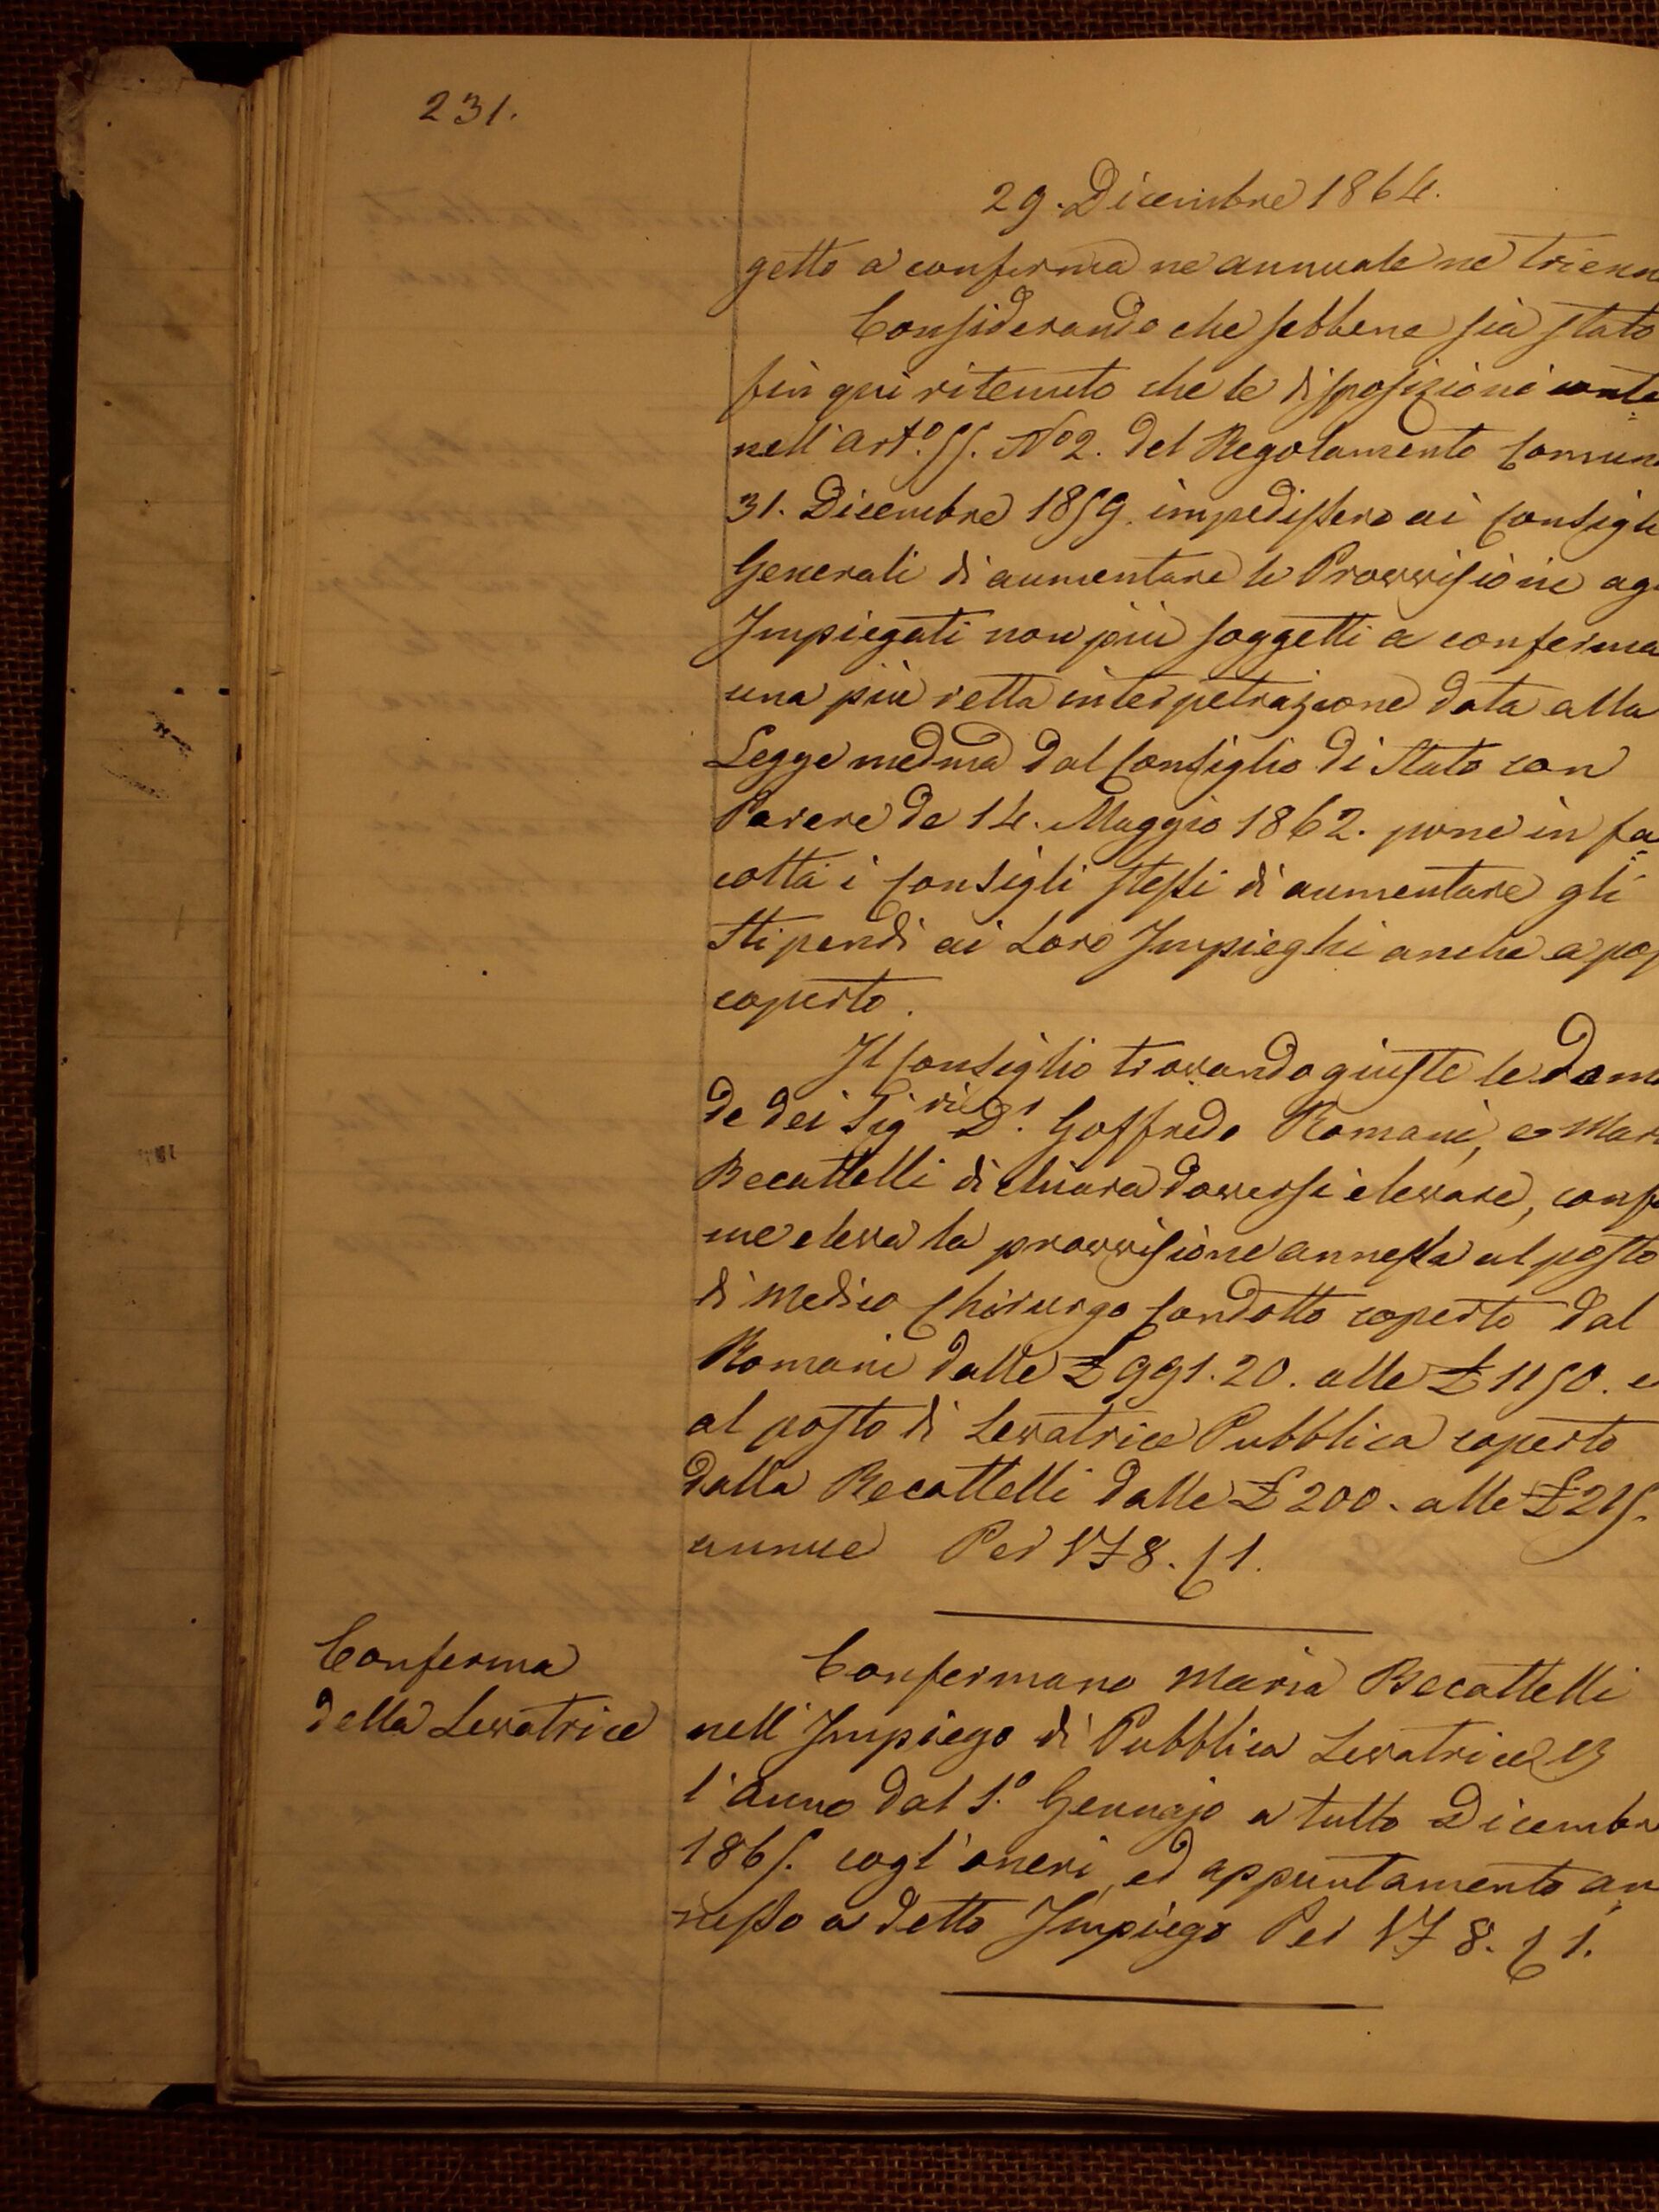 231.
29. Dicembre 1864.
getto a conferma ne annuale ne trienn
Considerando che sebbene sia stato
fin qui ritenuto che le disposizioni conte
nell'art.º 55. Nº 2. del Regolamento Comun
31. Dicembre 1859. impedissero ai Consigli
Generali di aumentare le Provvisioni ag
Impiegati non più soggetti a conferma
una più retta interpetrazione data alla
Legge medma dal Consiglio di Stato con
Parere de 14. Maggio 1862. pone in fa
coltà i Consigli stessi di aumentare gli
Stipendi ai Loro Impieghi anche a pos
coperto.
Il Consiglio trovando giuste le dom
de dei Sigri Dr. Goffredo Romani, e Mar
Becattelli dichiara doversi elevare, conf
me eleva la provvisione annessa al posto
di Medico Chirurgo Condotto coperto dal
Romani dalle £ 991.20. alle £ 1150. e
al posto di Levatrice Pubblica coperto
dalla Becattelli dalle £ 200. alle £ 215.
annue Per VF 8. C 1.
Conferma
della Levatrice
Confermano Maria Becattelli
nell'Impiego di Pubblica Levatrice
l'anno dal 1.º Gennajo a tutto Dicembr
1865. cogl'oneri, ed appuntamento an
nesso a detto Impiego Per VF 8. C 1.